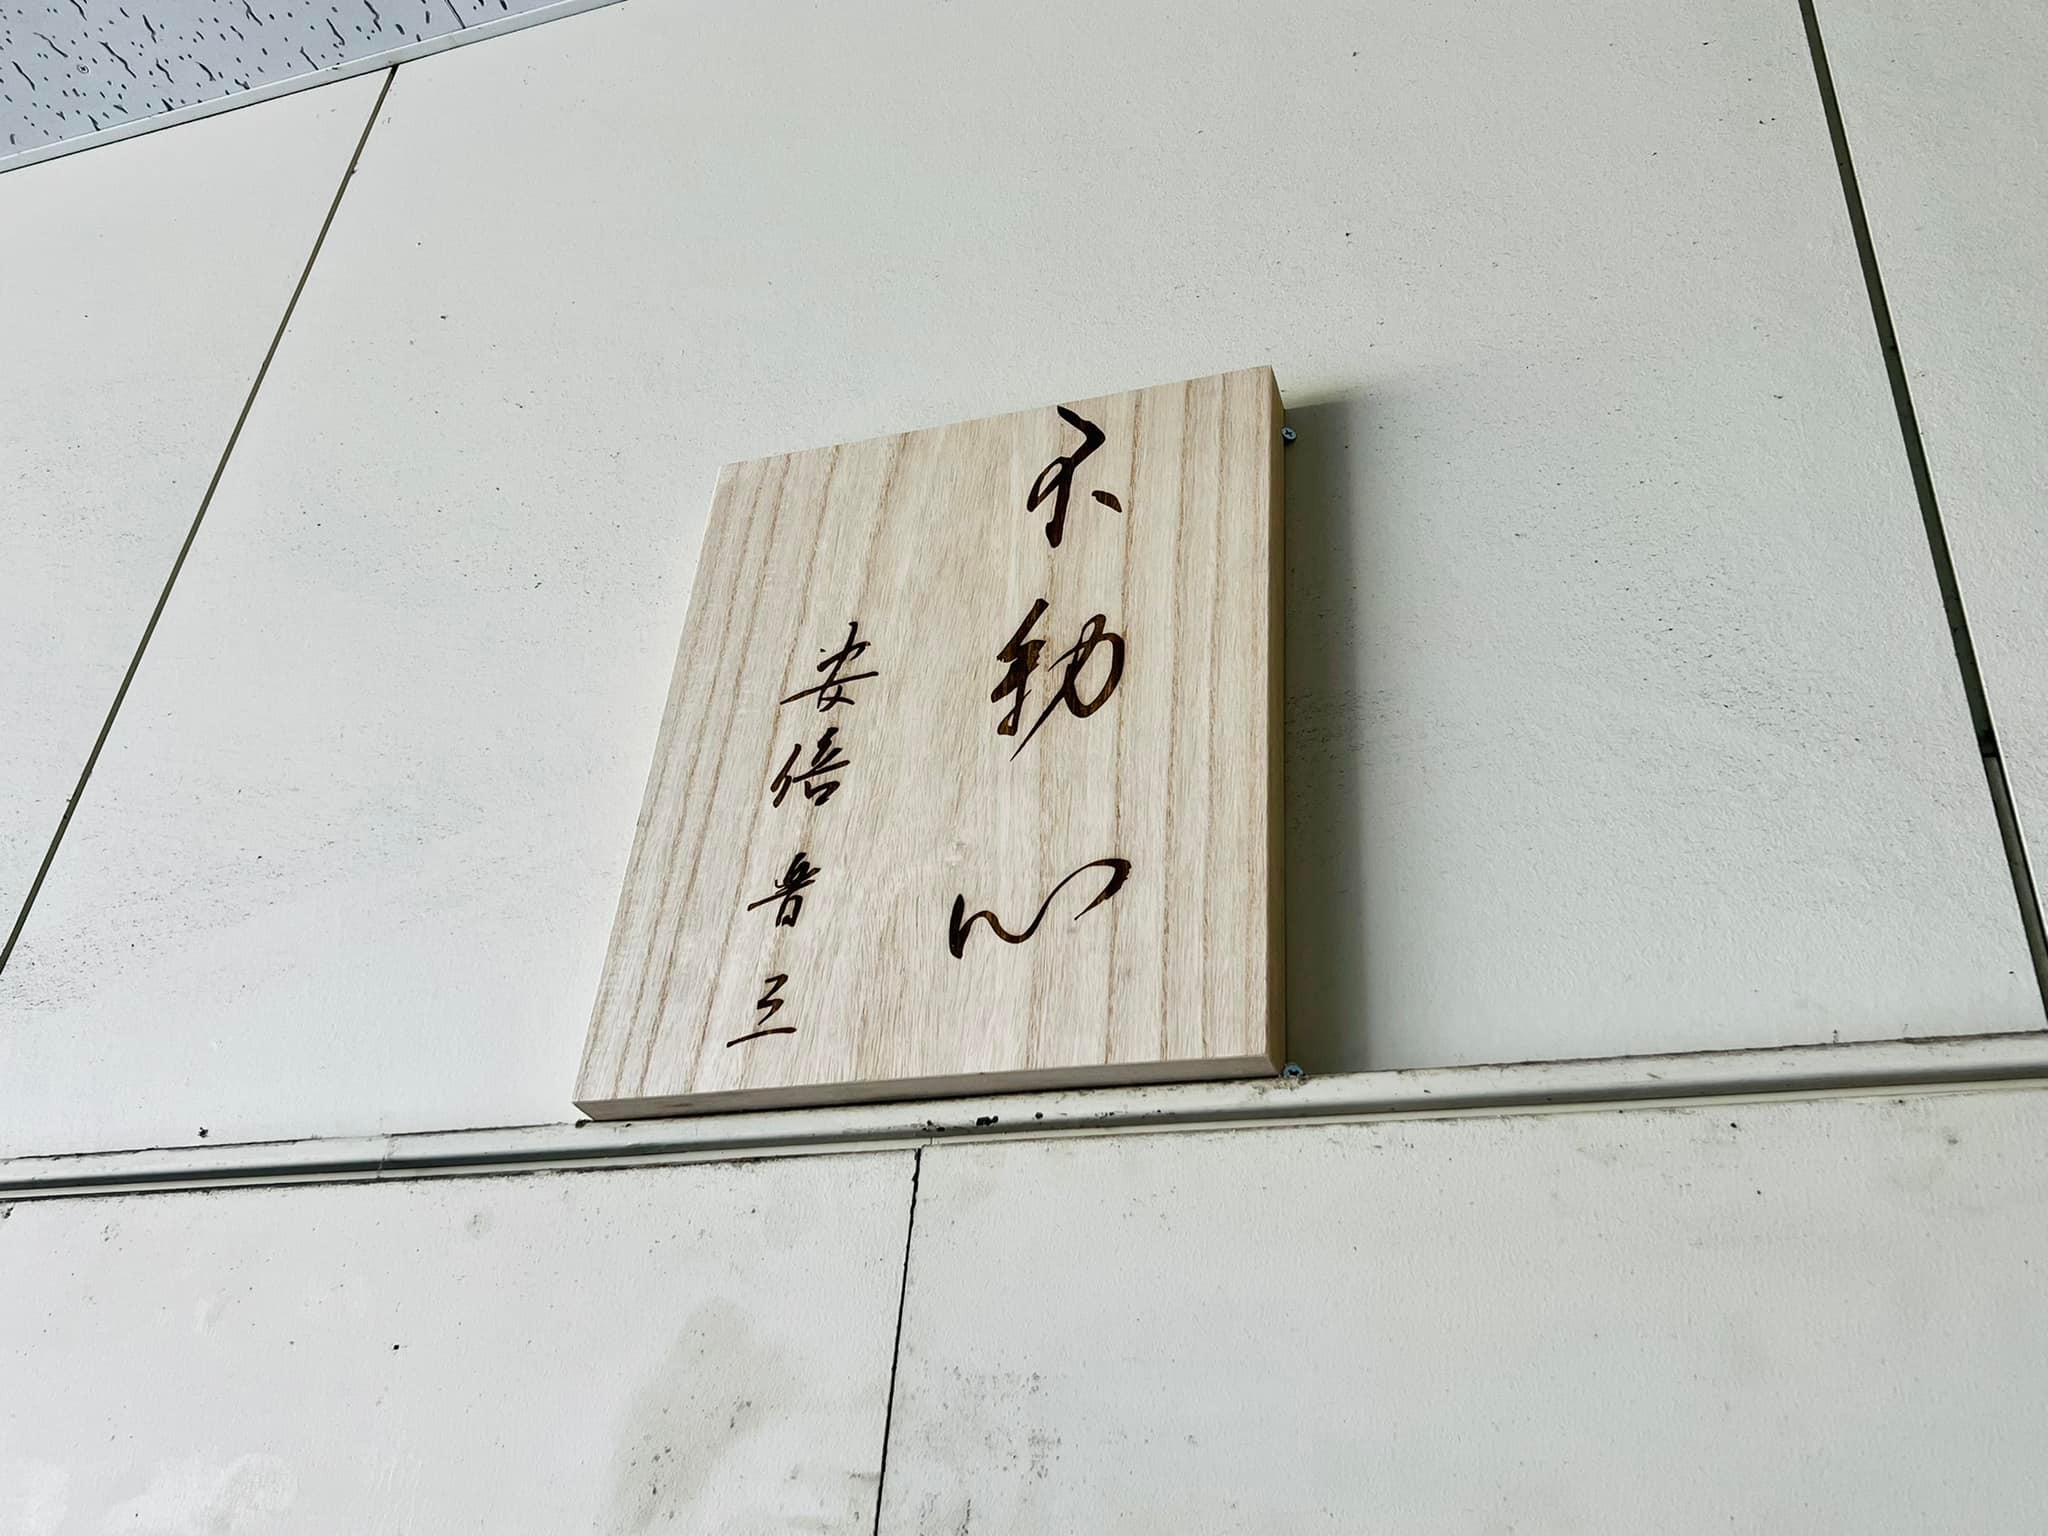 不動心
安倍晋三